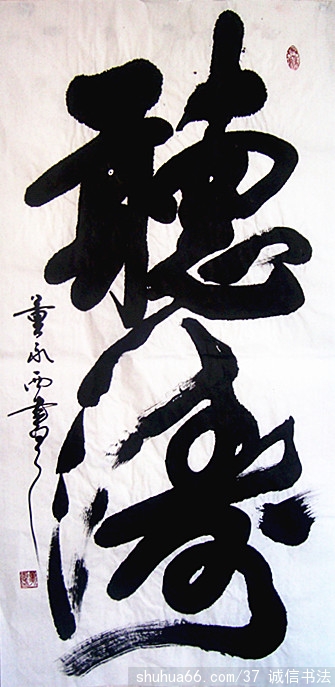 聽濤
董永西書
shuhua66.com/37 诚信书法